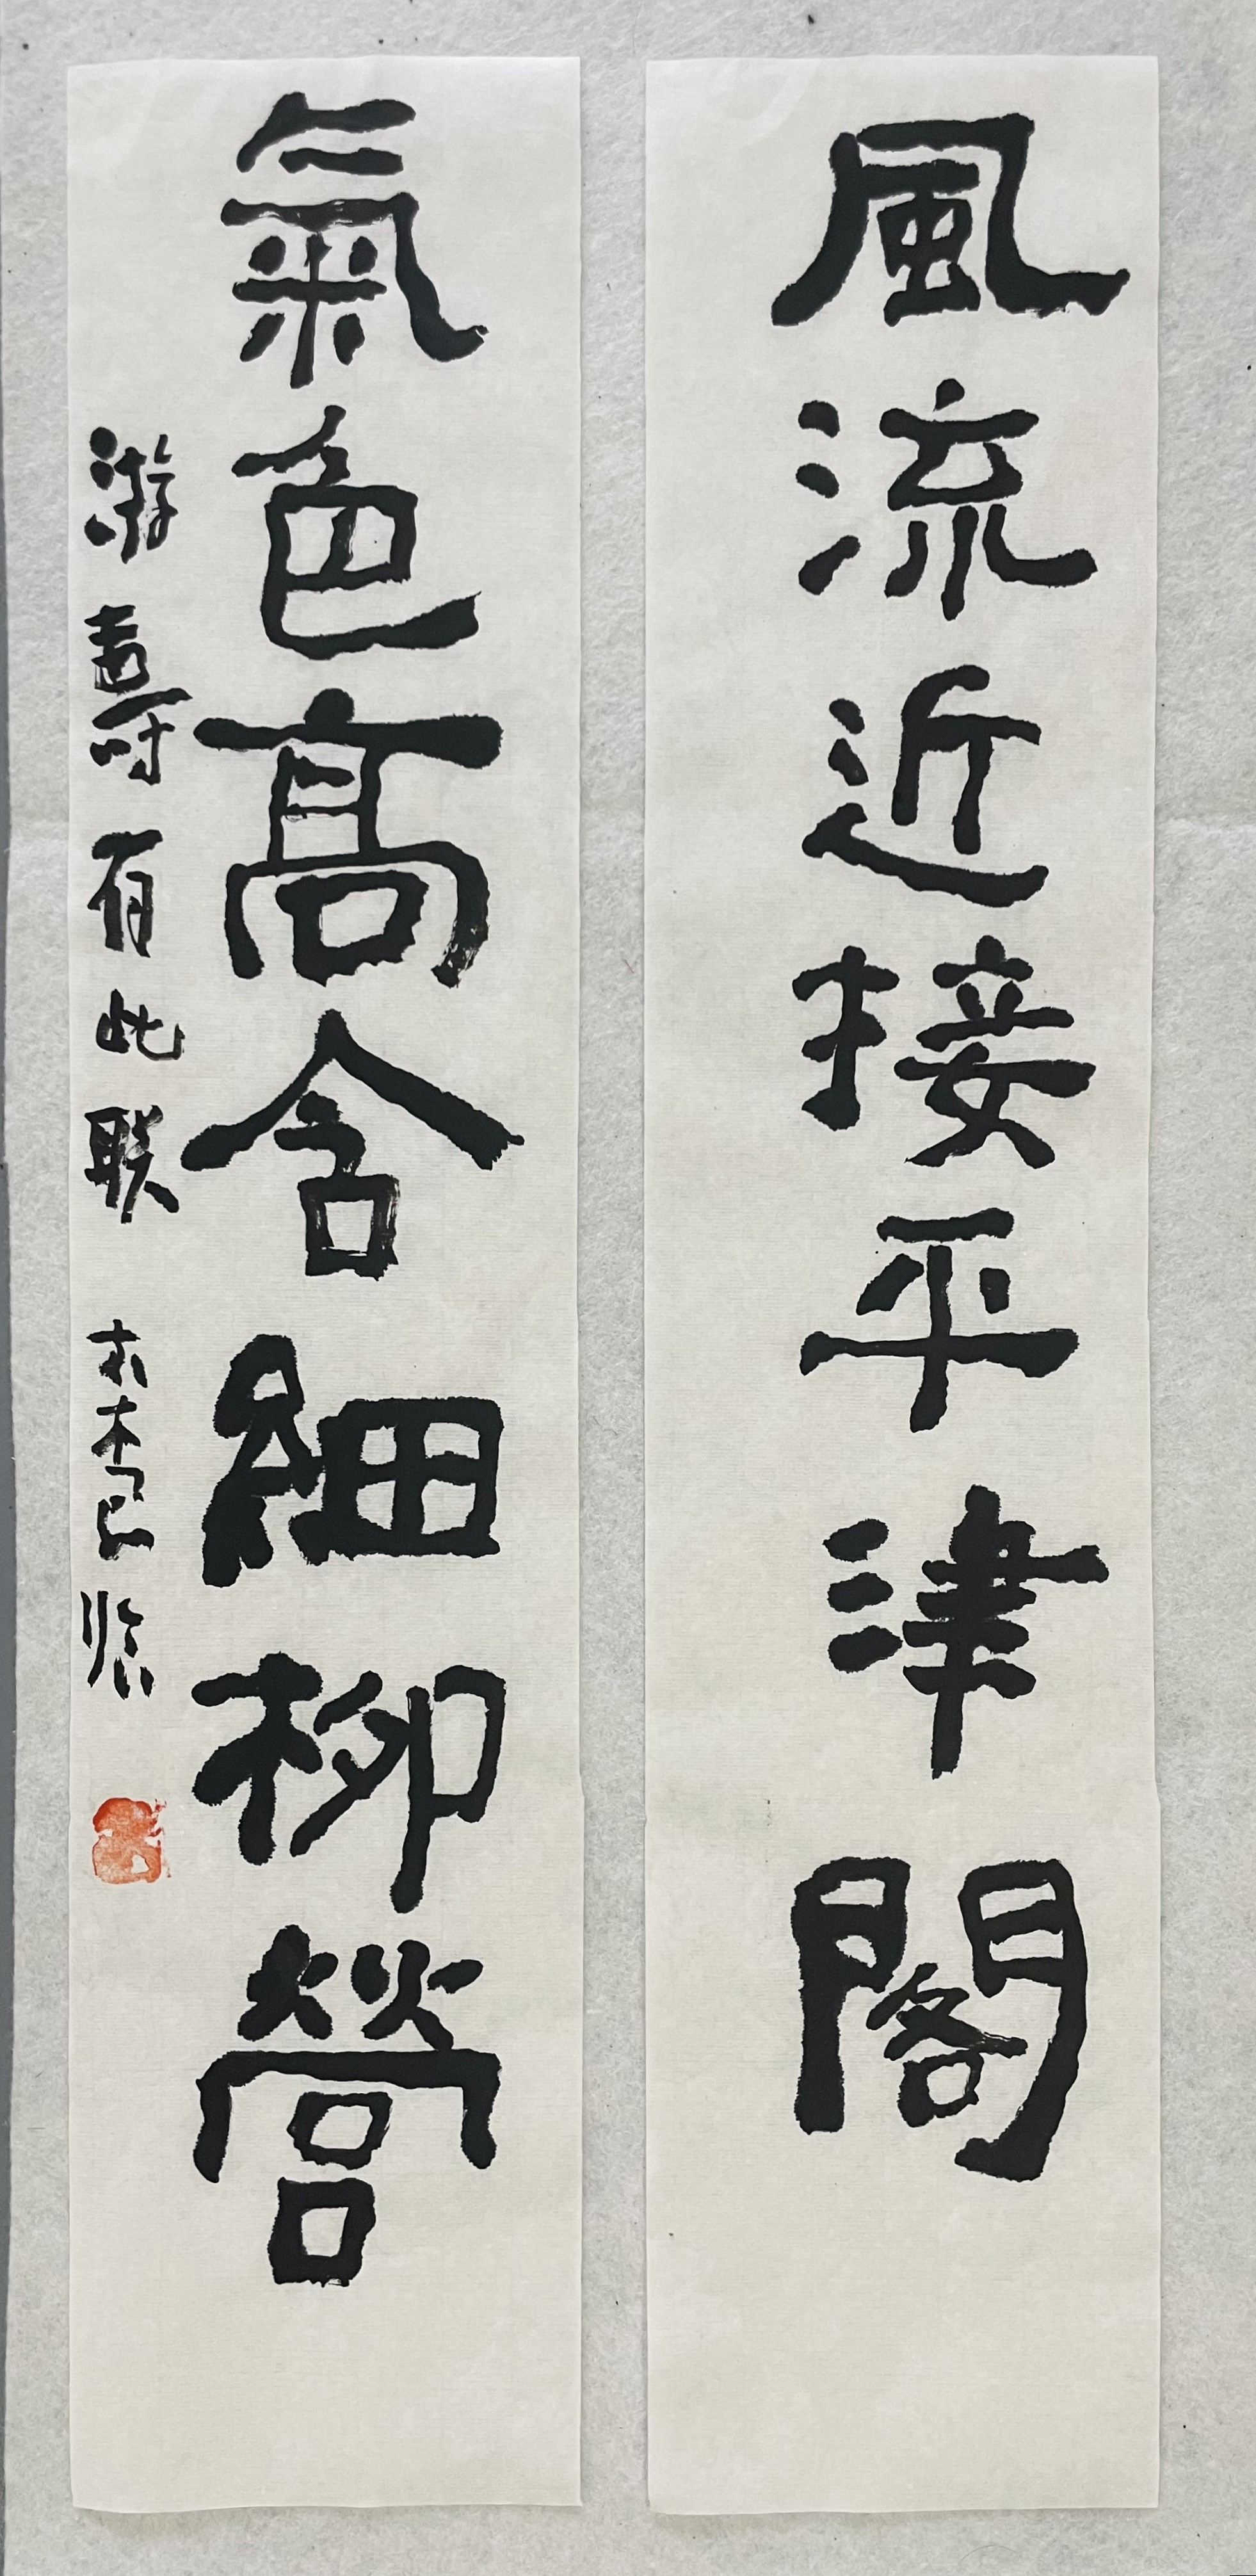 風流近接平津閣
氣色高含細柳營
游壽有此联 臨